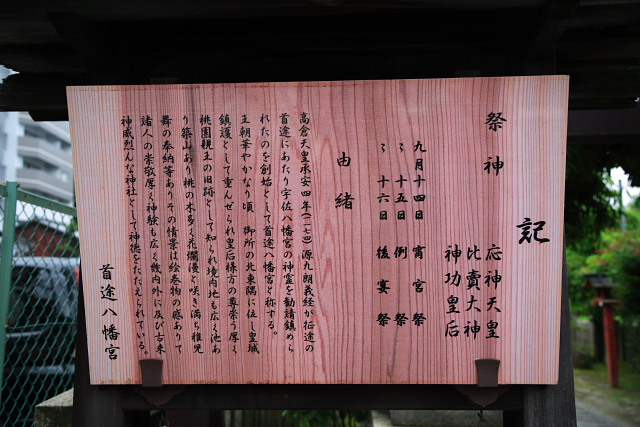 記
祭神
応神天皇
比賣大神
神功皇后
九月十四日 宵宮祭
〃 十五日 例 祭
〃 十六日 後宴祭
由緒
高倉天皇承安四年(一一七四)源九朗義経が征途の
首途にあたり宇佐八幡宮の神霊を勧請鎮めら
れたのを創始として首途八幡宮と称する。
王朝華やかなり頃 御所の北東隅に位し皇城
鎮護として重んぜられ皇后様方の尊崇う厚く
桃園親王の旧跡として知られ境内地も広く池あ
り築山あり桃の木多く花爛漫と咲き満ち稚児
舞の奉納等ありその情景は絵巻物の感ありて
諸人の崇敬厚く神験も広く畿内外に及び古来
神威烈んな神社として神徳をたたえられている。
首途八幡宮